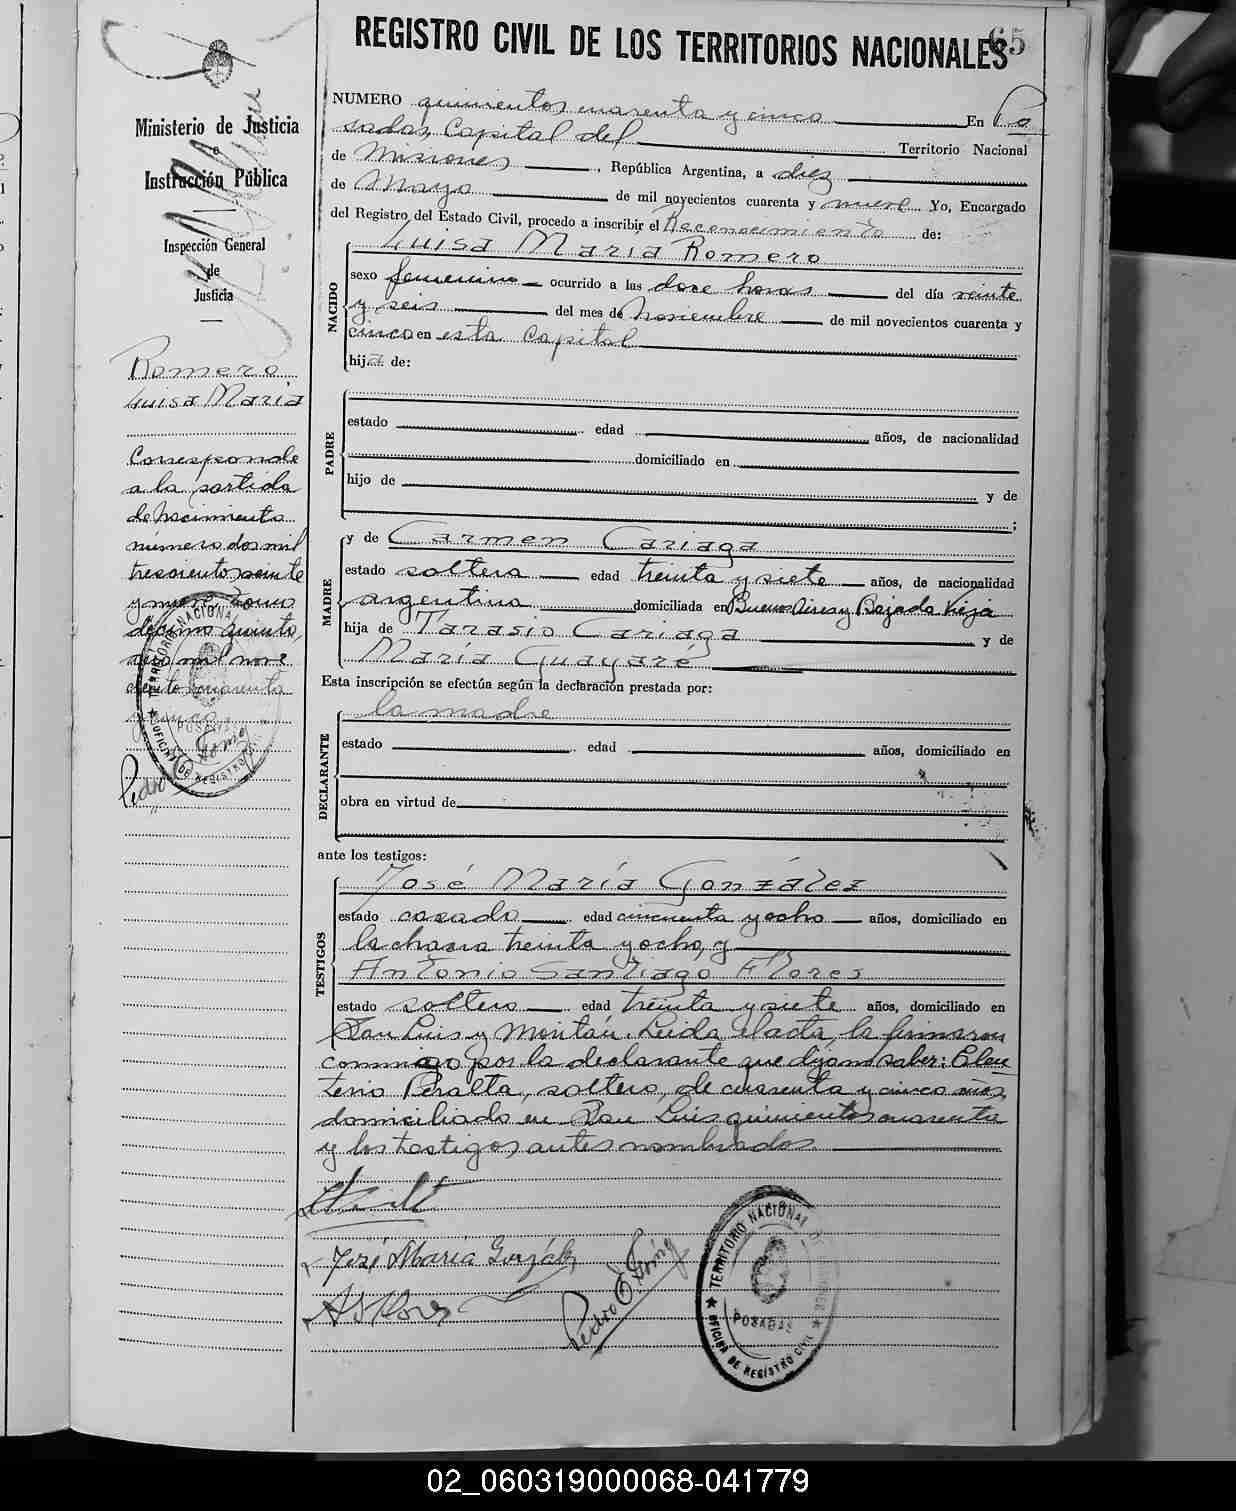 REGISTRO CIVIL DE LOS TERRITORIOS NACIONALES
65
Ministerio de Justicia
e
Instrucción Pública
Inspección General
de
Justicia
Romero,
Luisa María
Corresponde
a la partida
de nacimiento
número dos mil
trescientos veinte
y nueve tomo
décimo quinto,
año mil nove
cientos cuarenta
y cinco
Pedro E Gómez
TERRITORIO NACIONAL
POSADAS
OFICINA DE REGISTRO CIVIL
NUMERO quinientos cuarenta y cinco En Po
sadas Capital del Territorio Nacional
de Misiones, República Argentina, a diez
de Mayo de mil novecientos cuarenta y nueve Yo, Encargado
del Registro del Estado Civil, procedo a inscribir el Reconocimiento de:
NACIDO
Luisa María Romero
sexo femenino ocurrido a las doce horas del día veinte
y seis del mes de Noviembre de mil novecientos cuarenta y
cinco en esta Capital
hija de:
PADRE
estado edad años, de nacionalidad
domiciliado en
hijo de y de
;
MADRE
y de Carmen Cariaga
estado soltera edad treinta y siete años, de nacionalidad
argentina domiciliada en Buenos Aires y Bajada Vieja
hija de Tarasio Cariaga y de
María Guayaré
Esta inscripción se efectúa según la declaración prestada por:
DECLARANTE
la madre
estado edad años, domiciliado en
obra en virtud de
ante los testigos:
TESTIGOS
José María González
estado casado edad cincuenta y ocho años, domiciliado en
la chacra treinta y ocho, y
Antonio Santiago Flores
estado soltero edad treinta y siete años, domiciliado en
San Luis y Montán. Leida el acta, la firmaron
conmigo por la declarante que dijo no saber: Eleu
terio Peralta, soltero, de cuarenta y cinco años,
domiciliado en San Luis quinientos cuarenta
y los testigos antes nombrados.
José María González
A S Flores
Pedro E Gómez
TERRITORIO NACIONAL DE MISIONES
POSADAS
OFICINA DE REGISTRO CIVIL
02_060319000068-041779